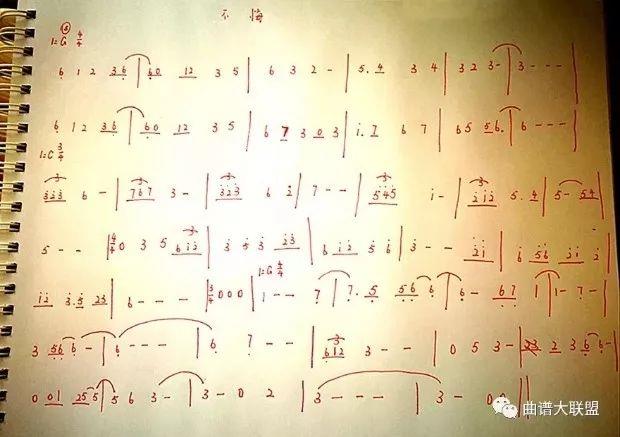 不悔
1=G 4/4
6 1 2 36 | 60 12 3 5 | 6 3 2 - | 5. 4 3 4 | 3 2 3 - | 3 - - - |
6 1 2 36 | 60 12 3 5 | 6 7 3 0 3 | i. 7 6 7 | 65 56. | 6 - - - |
1=C 3/4
323 6 - | 767 3 - | 323 6 2 | 7 - - | 545 i - | 212 5. 4 | 5 - 54 |
5 - - | 4/4 0 3 5 612 | 3 5 3 23 | 6 12 5 6 | 3 - - 21 | 6 56 21 2
12 3.5 23 | 6 - - - | 3/4 0 0 0 | 1=G 4/4 1 - - 7 | 7. 5 56 6 | 6 - 67 1 | 1 - 7 - |
3 56 6 - | 6 - - - | 6 7 - - | 612 3 - - | 0 5 3 - | 2 3 6 6 - |
0 01 25 5 | 5 6 3 - | 3 - 0 2 | 3 - - - | 3 - 0 0 ||
曲谱大联盟